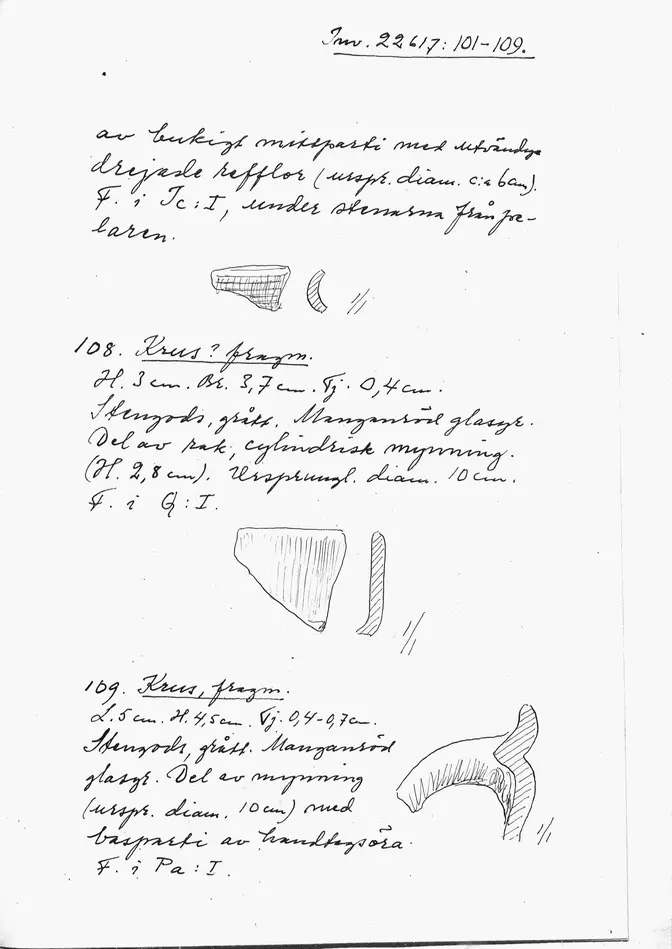 Inv. 22617:101-109.
av bukigt mittparti med utvändiga
drejade refflor (urspr. diam. c:a 6 cm).
F. i Ic:I, under stenarna från pe-
laren.
1/1
108. Krus? fragm.
H. 3 cm. Br. 3,7 cm. Tj. 0,4 cm.
Stengods, grått. Manganröd glasyr.
Del av rak, cylindrisk mynning.
(H. 2,8 cm). Ursprungl. diam. 10 cm.
F. i G:I.
1/1
109. Krus, fragm.
L. 5 cm. H. 4,5 cm. Tj. 0,4-0,7 cm.
Stengods, grått. Manganröd
glasyr. Del av mynning
(urspr. diam. 10 cm) med
basparti av handtagsöra.
1/1
F. i Pa:I.